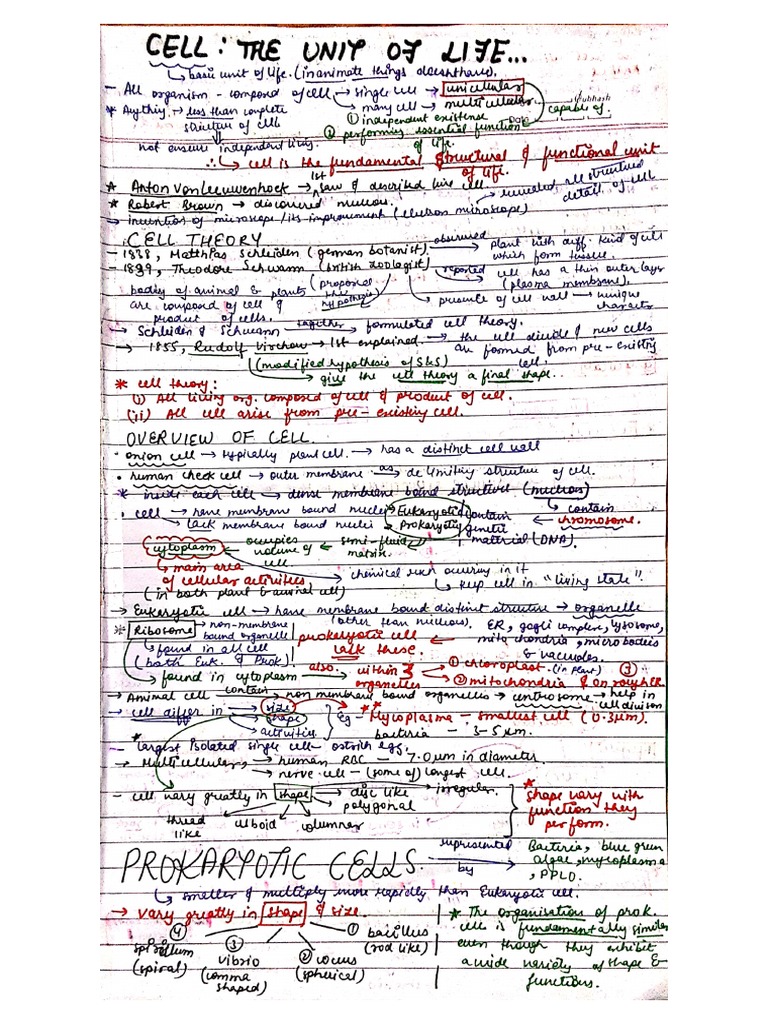 CELL: THE UNIT OF LIFE...
↳ basic unit of life. (inanimate things doesn't have).
- All organism - composed of cell → single cell → unicellular
→ many cell → multicellular
capable of.
* Anything → less than complete structure of cell
① independent existense
② performing essential function of life.
not ensure independent living.
∴ ↳ cell is the fundamental structural & functional unit of life.
* Anton Von Leeuwenhoek → 1st saw & described live cell.
* Robert Brown → discovered nucleus.
→ invention of microscope / its improvement (electron microscope) → revealed all structural detail of cell
CELL THEORY
- 1838, Matthias Schleiden (german botanist). observed → plant with diff. kind of cell which form tissue.
- 1839, Theodore Schwann (british zoologist) reported → cell has a thin outer layer (plasma membrane).
bodies of animal & plants are composed of cell & product of cells. (proposed the hypothesis)
→ presence of cell wall → unique character
→ Schleiden & Schwann together → formulated cell theory.
→ 1855, Rudolf Virchow → 1st explained → the cell divide & new cells are formed from pre-existing cell.
(modified hypothesis of S&S)
→ give the cell theory a final shape.
* cell theory:
(i) All living org. composed of cell & product of cell.
(ii) All cell arise from pre-existing cell.
OVERVIEW OF CELL.
• onion cell → typically plant cell. → has a distinct cell wall
• human cheek cell → outer membrane as → delimiting structure of cell.
* inside each cell → dense membrane bound structure (nucleus)
↳ contain chromosome.
• cell → have membrane bound nuclei → Eukaryotic
↳ lack membrane bound nuclei → Prokaryotic
contain genetic material (DNA).
cytoplasm occupies volume of cell. ← semi-fluid matrix.
↳ main area of cellular activities
(in both plant & animal cell)
chemical rxn occuring in it
↳ keep cell in "living state".
→ Eukaryotic cell → have membrane bound distinct structure → organelle
(other than nucleus).
ER, golgi complex, lysosome, mitochondria, microbodies & vacuoles.
prokaryotic cell lack these.
* Ribosome → non-membrane bound organelle
↳ found in all cell (both Euk. & Prok)
↳ found in cytoplasm also → within 3 organelles → ① chloroplast (in plant) ③
② mitochondria & on rough ER
→ Animal cell contain → non membrane bound organelles → centrosome → help in cell divison
→ cell differ in → size
→ shape
→ activities
Eg - Mycoplasma - smallest cell (0.3µm).
bacteria - 3-5 µm.
- largest isolated single cell - ostrich egg.
→ Multicellular, → human RBC - 7.0µm in diameter.
→ nerve cell - (some of) longest cell.
- cell vary greatly in shape → disc like → irregular.
→ polygonal
thread like
cuboid
columner
* shape vary with function they perform.
PROKARYOTIC CELLS. represented by → Bacteria, blue green algae, mycoplasma, PPLO.
↳ smaller & multiply more rapidly than Eukaryotic cell.
→ Vary greatly in shape & size.
① bacillus (rod like)
② cocus (spherical)
③ vibrio (comma shaped)
④ spirillum (spiral)
* The organisation of prok. cell is fundamentally similar even though they exhibit a wide variety of shape & functions.